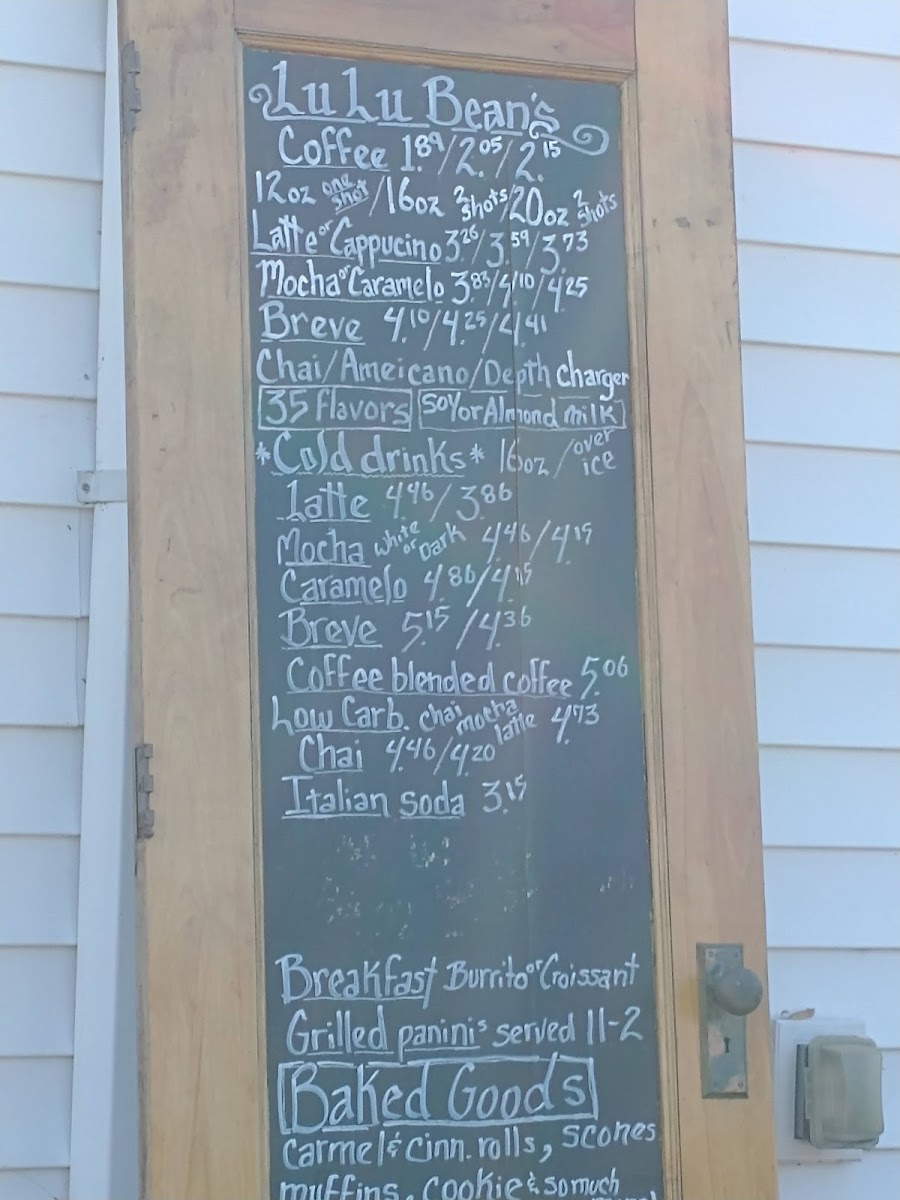 LuLu Bean's
Coffee 1.89/2.05/2.15
12oz one shot/16oz 2 shots/20oz 2 shots
Latte or Cappucino 3.26/3.59/3.73
Mocha or Caramelo 3.83/4.10/4.25
Breve 4.10/4.25/4.41
Chai/Ameicano/Depth charger
35 flavors soy or Almond milk
*Cold drinks* 16oz/over ice
Latte 4.46/3.86
Mocha white or Dark 4.46/4.15
Caramelo 4.86/4.15
Breve 5.15/4.36
Coffee blended coffee 5.06
Low Carb. chai mocha latte 4.73
Chai 4.46/4.20
Italian soda 3.15
Breakfast Burrito or Croissant
Grilled panini's served 11-2
Baked Goods
carmel & cinn. rolls, scones
muffins, cookie & so much